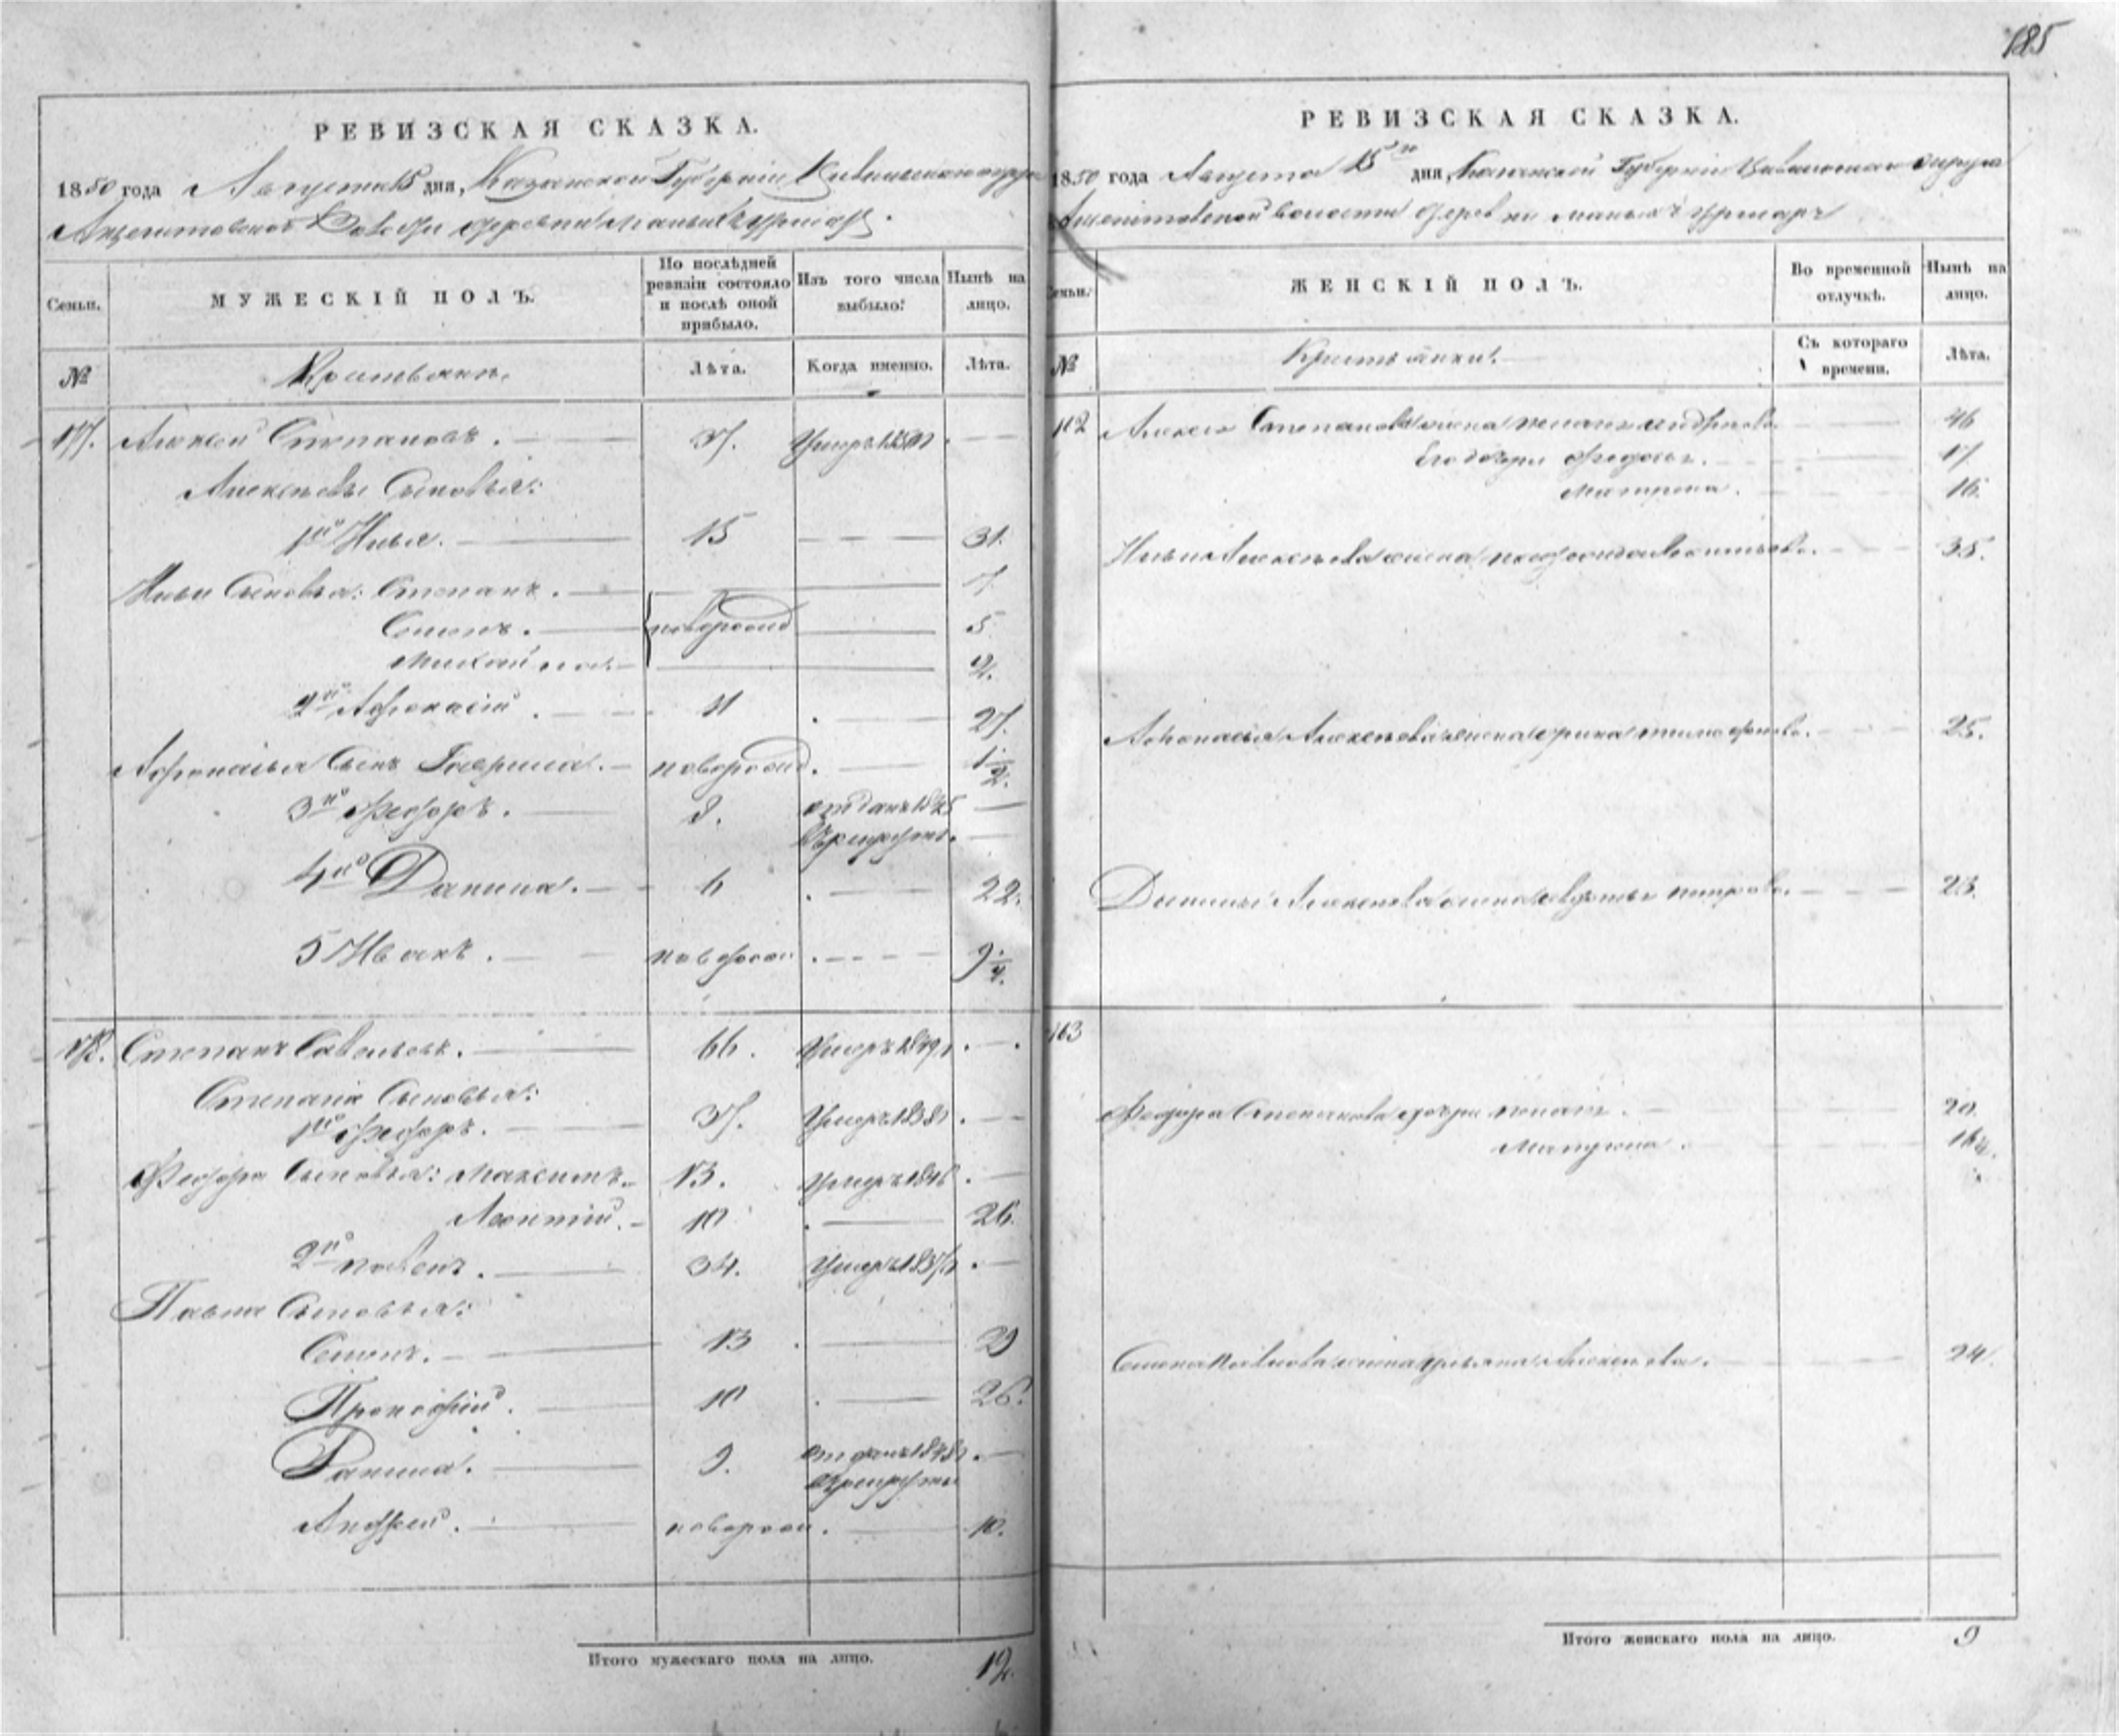 185
РЕВИЗСКАЯ СКАЗКА.
1850 года Августа 15 дня, Казанской Губерніи Цивильскаго округа
Волости деревни Малыхъ Урмаръ.
Семьи.
МУЖЕСКІЙ ПОЛЪ.
По послѣдней ревизіи состояло и послѣ оной прибыло.
Изъ того числа выбыло:
Нынѣ на лицо.
№
Крестьяне.
Лѣта.
Когда именно.
Лѣта.
Алексей Степановъ. 37. Умеръ
Алексеевы Сыновья:
1й Илья. 15 31.
Ильи Сыновья: Степанъ. 7
Семенъ. новорожд 5
2.
2й Афонасій. 11 27.
Афонасья Сынъ Гаврила. новорожд. 1/2.
3й Федоръ. 8. отданъ 1845
в рекруты.
4й Данила. 6 22.
5 Иванъ. новорож 9/4.
Степанъ Савельевъ. 66. Умеръ 1849
Степана Сыновья:
1й Федоръ. 37. Умеръ 1838
Федора Сыновья: Максимъ. 13. Умеръ 1846
Леонтій. 10 26.
2й Павелъ. 34. Умеръ 1837
Павла Сыновья:
Семенъ. 13 29
Прокофій. 10 26.
Данила. 9. отданъ 1848
в рекруты
Андрей. новорож. 10.
Итого мужескаго пола на лицо. 12.
РЕВИЗСКАЯ СКАЗКА.
1850 года Августа 15го дня, Казанской Губерніи Цивильскаго округа
волости деревни малыхъ Урмаръ
Семьи.
ЖЕНСКІЙ ПОЛЪ.
Во временной отлучкѣ.
Нынѣ на лицо.
№
Крестьянки.
Съ котораго времени.
Лѣта.
Алексея Степанова жена 46
Его дочери Федосья. 17
Матрена. 16.
Ильи Алексеева жена 35.
Афонасья Алексеева жена Ирина Тимофеева. 25.
Данилы Алексеева жена Авдотья Петрова. 23.
163
Федора Степанова дочери 20.
Матрена.
Семена Павлова жена Ульяна Алексеева. 24.
Итого женскаго пола на лицо. 9